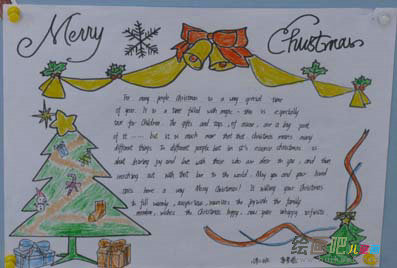 Merry Christmas
For many people Christmas is a very special time
of year. It is a time filled with magic. this is especially
true for Children. The gifts and toys, of course, are a big part
of it ...... but it is much more than that. Christmas means many
different things to different people but in it's essence christmas is
about sharing joy and love with those who are dear to you, and then
reaching out with that love to the world. May you and your loved
ones have a very Merry Christmas! I wishing your Christmas
to fill warmly, the joy with the family
member, wishes the Christmas happy, new year
绘画吧